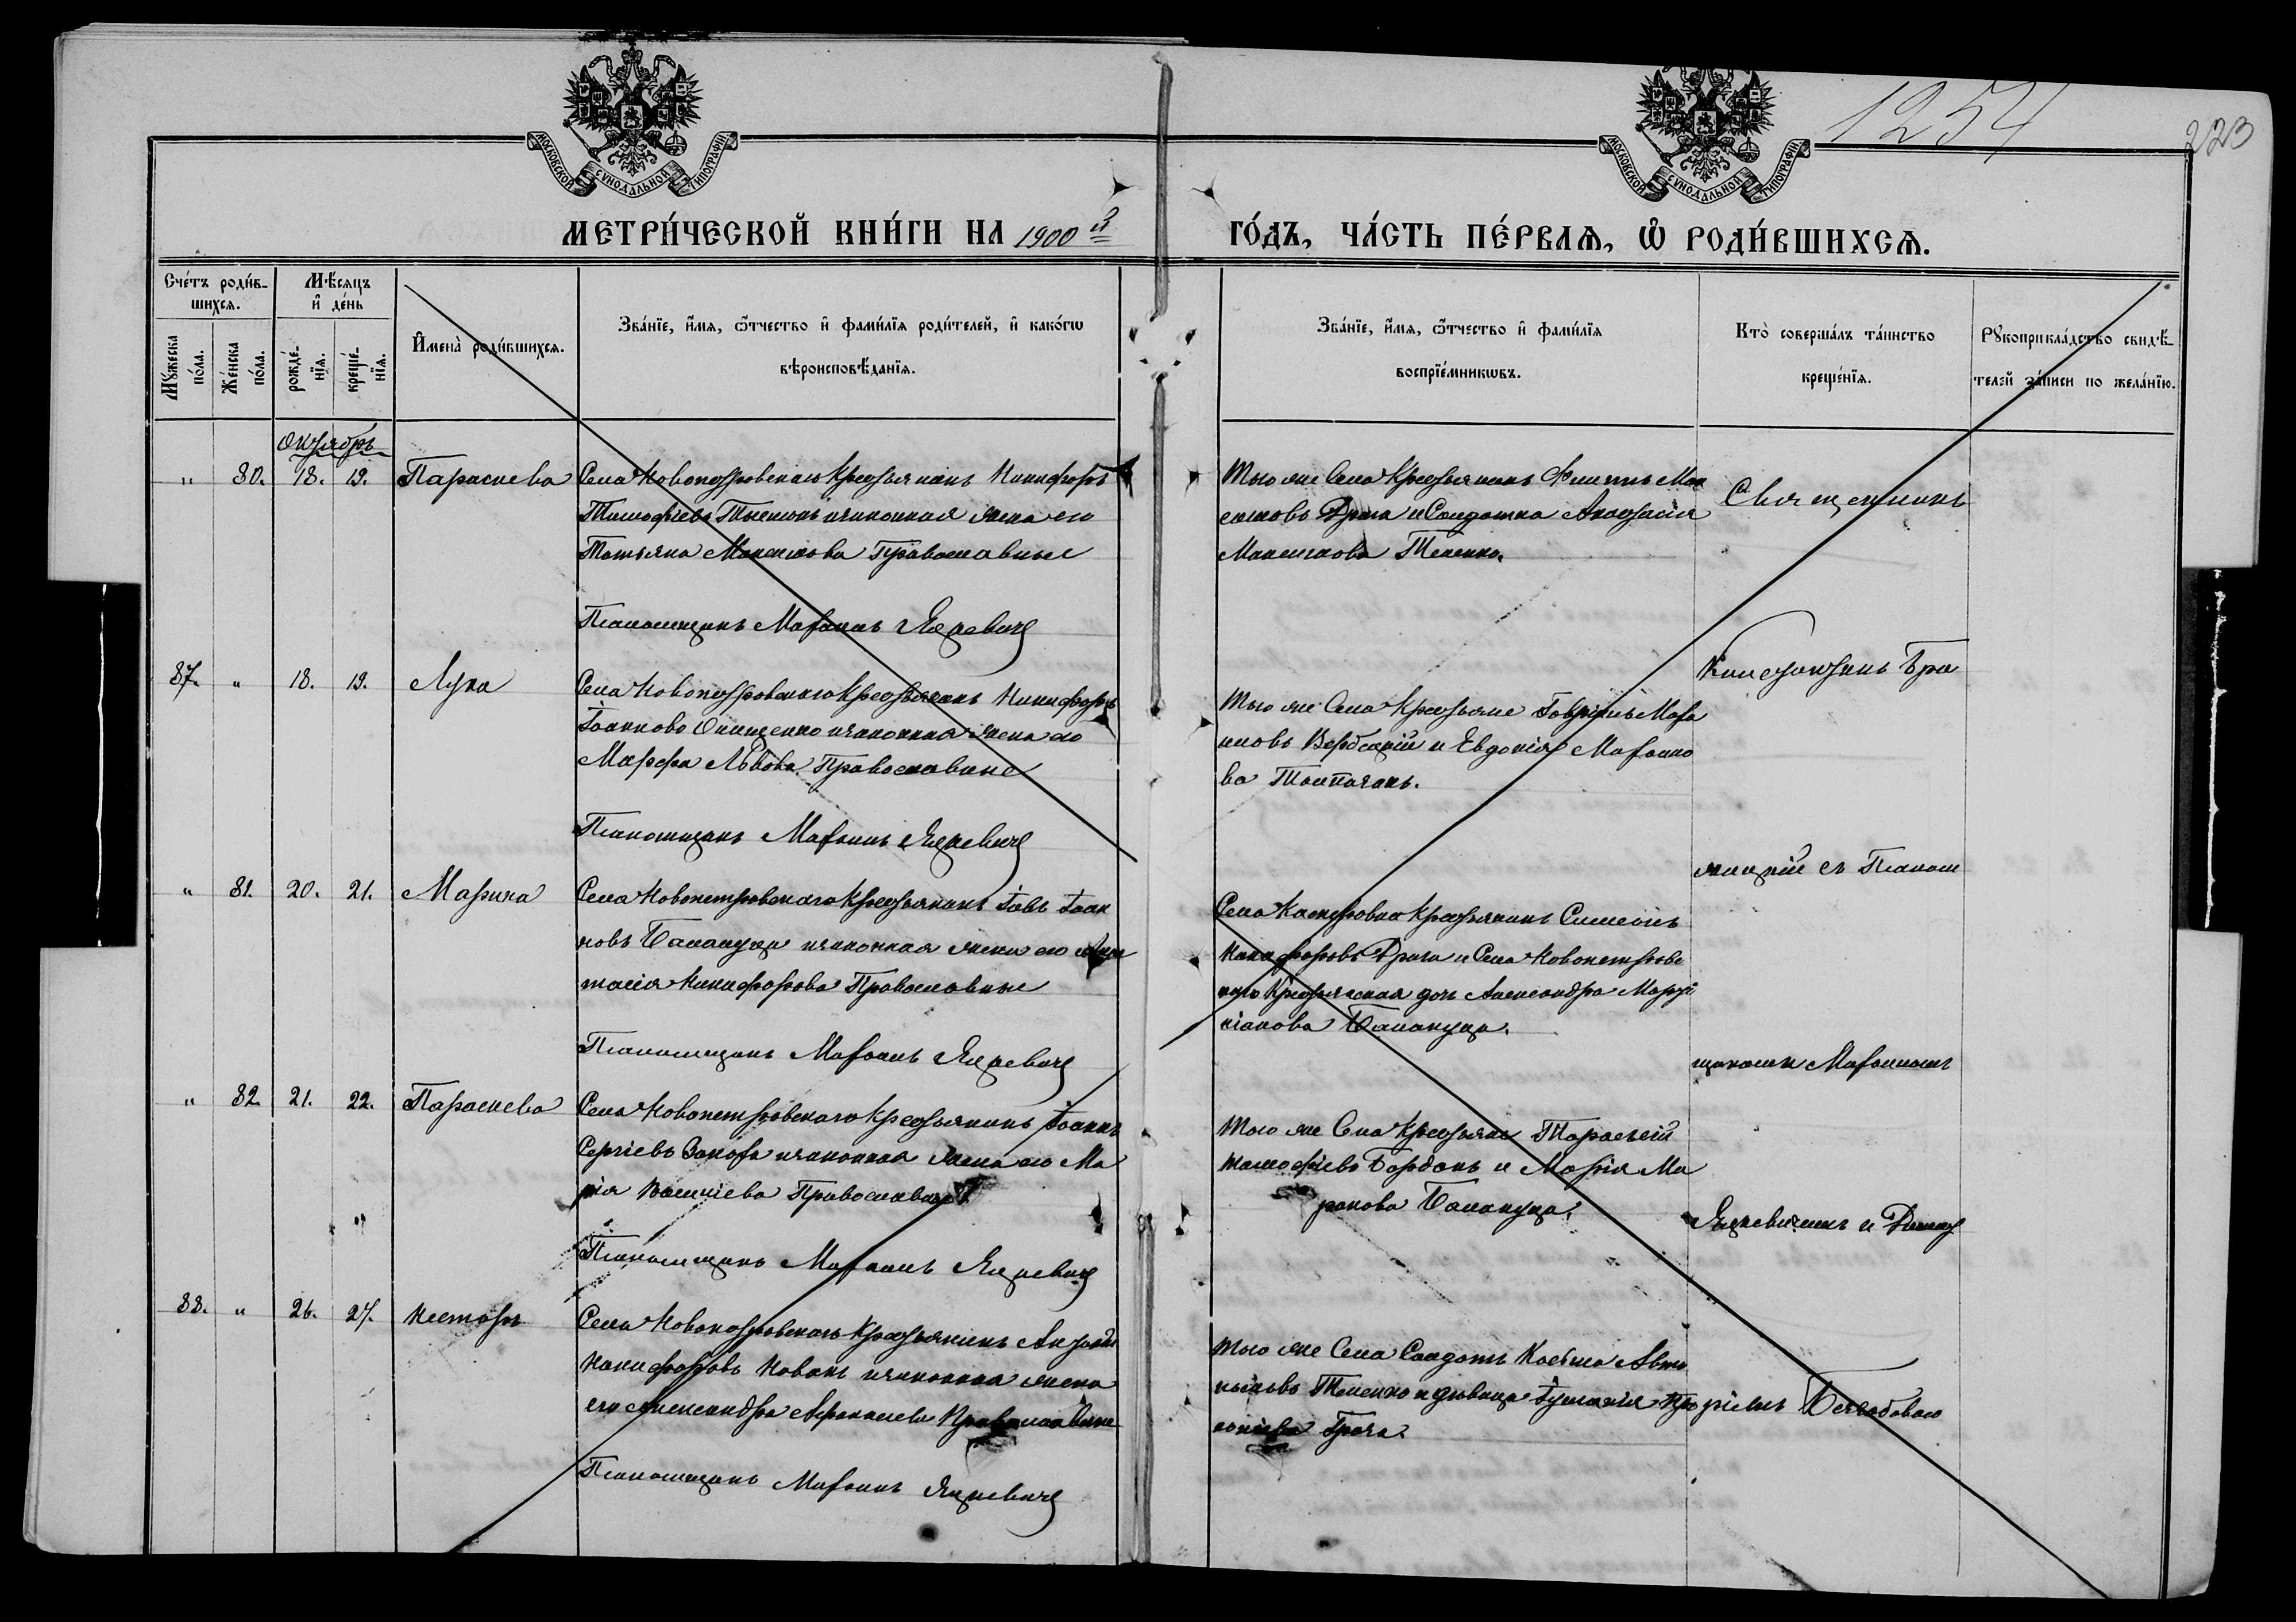 1254
223
МОСКОВСКОЙ СѴНОДАЛЬНОЙ ТИПОГРАФІИ
МОСКОВСКОЙ СѴНОДАЛЬНОЙ ТИПОГРАФІИ
МЕТРИ́ЧЕСКОЙ КНИ́ГИ НА 1900й
ГО́ДЪ, ЧА́СТЬ ПЕ́РВАЯ, Ѽ РОДИ́ВШИХСЯ.
Сче́тъ роди́в-
шихся.
Мꙋ́жеска по́ла.
Же́нска по́ла.
Мѣ́сяцъ и де́нь
рожде́-нїя.
креще́-нїя.
Имена̀ роди́вшихся.
Зва́нїе, и́мя, ѻ҆́тчество и фами́лїя роди́телей, и како́гѡ
вѣроисповѣ́данїя.
Зва́нїе, и́мя, ѻ҆́тчество и фами́лїя
воспрїе́мникѡвъ.
Кто̀ соверша́лъ та́инство
креще́нїя.
Рꙋкоприкла́дство свидѣ́-
телей за́писи по жела́нїю.
Октябрь
" 80. 18. 19. Параскева
Села Новопетровскаго Крестьянинъ Никифоръ
Тимофіевъ законная жена его
Татьяна Максимова Православные
Псаломщикъ Маркіанъ Яцкевичъ
Того же Села Крестьянинъ Филиппъ Мак
симовъ Драга и Солдатка Анастасія
Максимова Теленко.
Священникъ
87. " 18. 19. Лука
Села Новопетровскаго Крестьянинъ Никифоръ
Іоанновъ Онищенко и законная жена его
Марфа Львова Православные
Псаломщикъ Маркіанъ Яцкевичъ
Того же Села Крестьяне Гавріилъ Маркі
ановъ Вербецкій и Евдокія Маркіано
ва
Константинъ Бра
" 81. 20. 21. Марина
Села Новопетровскаго Крестьянинъ Іовъ Іоан
новъ Балануца и законная жена его Ана
стасія Никифорова Православные
Псаломщикъ Маркіанъ Яцкевичъ
Села Крестьянинъ Симеонъ
Никифоровъ Драга и Села Новопетровс
каго Крестьянская дочь Александра Маркі
іанова Балануца.
съ Псалом
щикомъ Маркіаномъ
" 82. 21. 22. Параскева
Села Новопетровскаго Крестьянинъ Іоаннъ
Сергіевъ и законная жена его Ма
рія Василіева Православные
Псаломщикъ Маркіанъ Яцкевичъ
Того же Села Крестьяне Тарасій
Тимофіевъ Борданъ и Марія Ма
ркова Балануца.
Яцкевичемъ и
88. " 26. 27. Несторъ
Села Новопетровскаго Крестьянинъ
Никифоровъ Новакъ и законная жена
его Александра Афанасіева Православные
Псаломщикъ Маркіанъ Яцкевичъ
Того же Села Солдатъ Косьма
Теленко и дѣвица
Грача